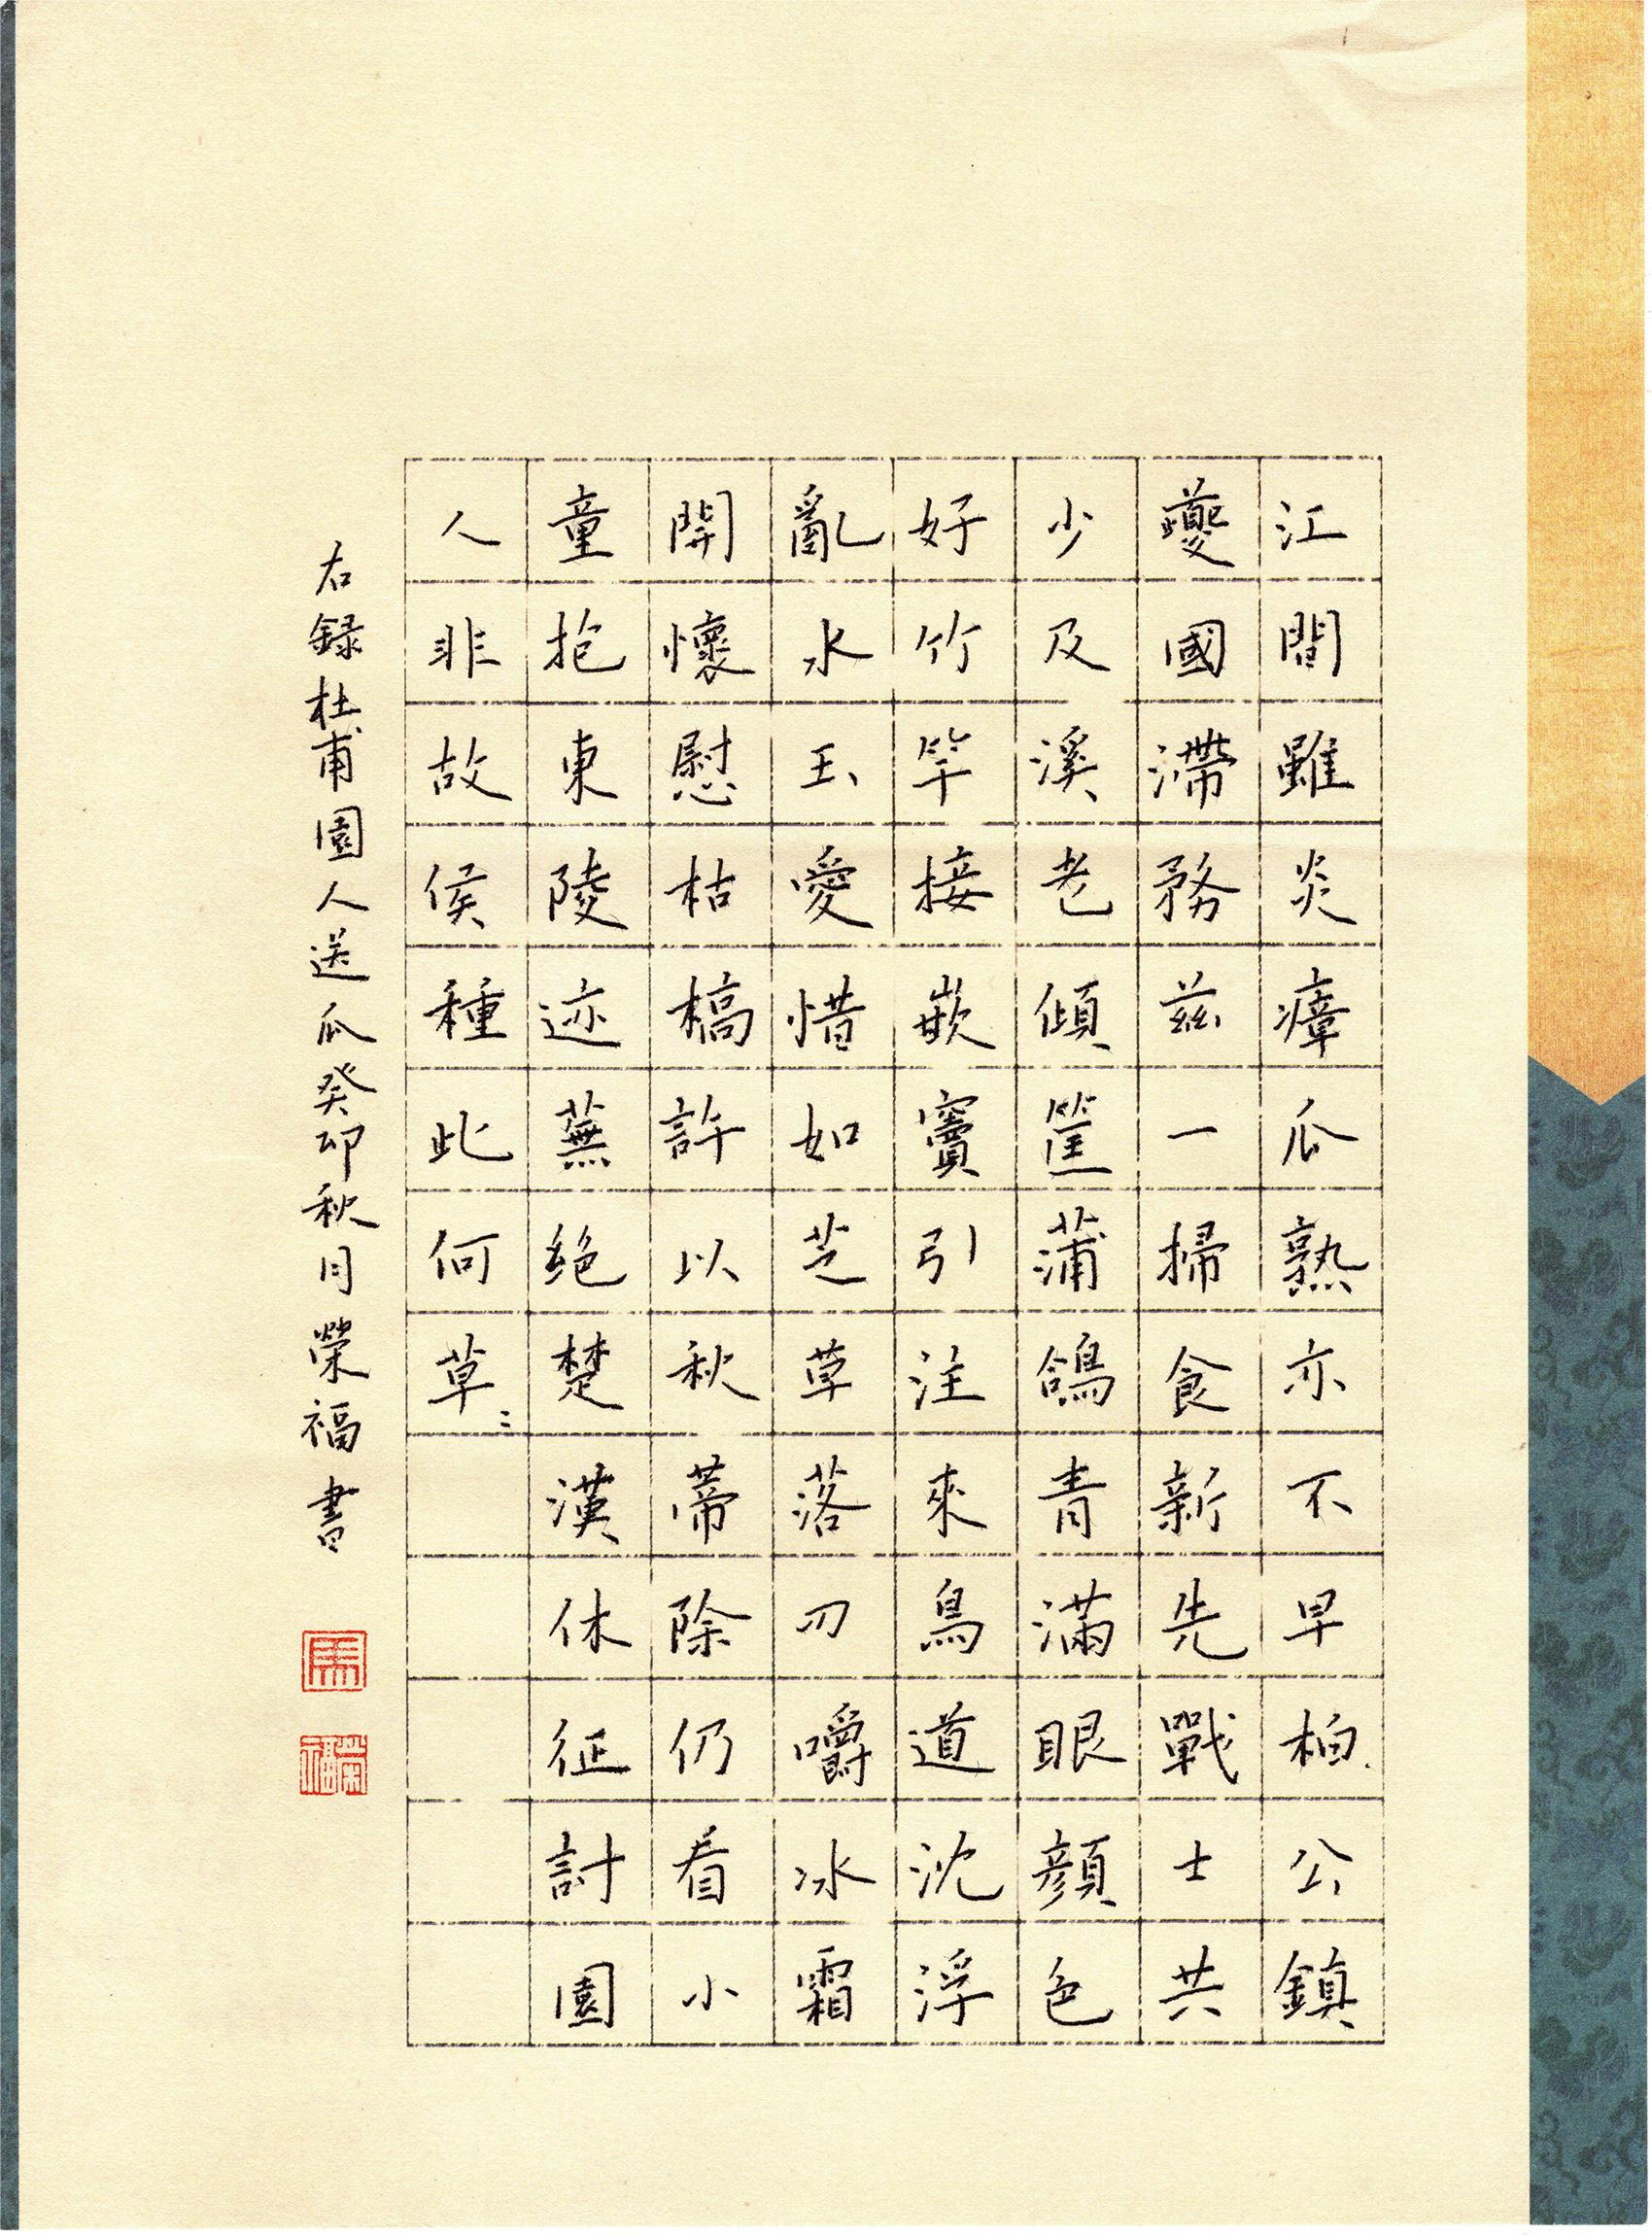 江間雖炎瘴瓜熟亦不早柏公鎮
夔國滯務茲一掃食新先戰士共
少及溪老傾筐蒲鴿青滿眼顏色
好竹竿接嵌竇引注來鳥道沈浮
亂水玉愛惜如芝草落刃嚼冰霜
開懷慰枯槁許以秋蒂除仍看小
童抱東陵迹蕪絕楚漢休征討園
人非故侯種此何草二
右録杜甫園人送瓜癸卯秋月榮福書
馬
榮福